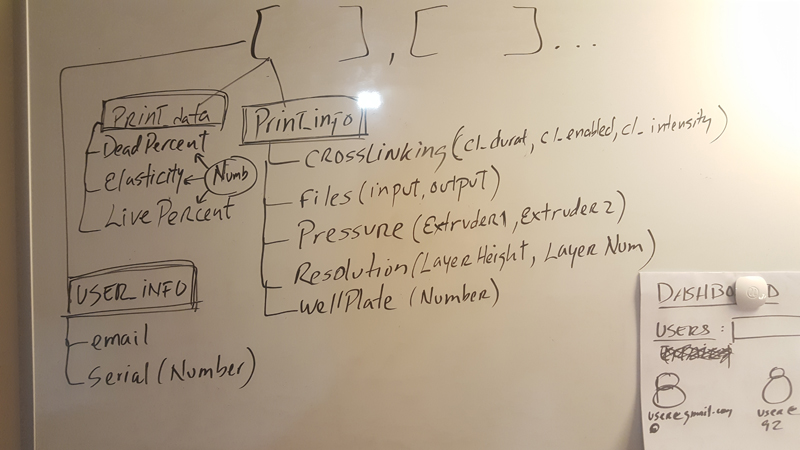 [ ] , [ ] ...
Print_data
DeadPercent
Elasticity
LivePercent
Numb
Print_info
CROSSLinking (cl_durat, cl_enabled, cl_intensity)
Files (input, output)
Pressure (Extruder1, Extruder2)
Resolution (Layer Height, Layer Num)
wellPlate (Number)
USER_INFO
email
Serial (Number)
DASHBO D
USERS :
user@gmail.com
user@
92